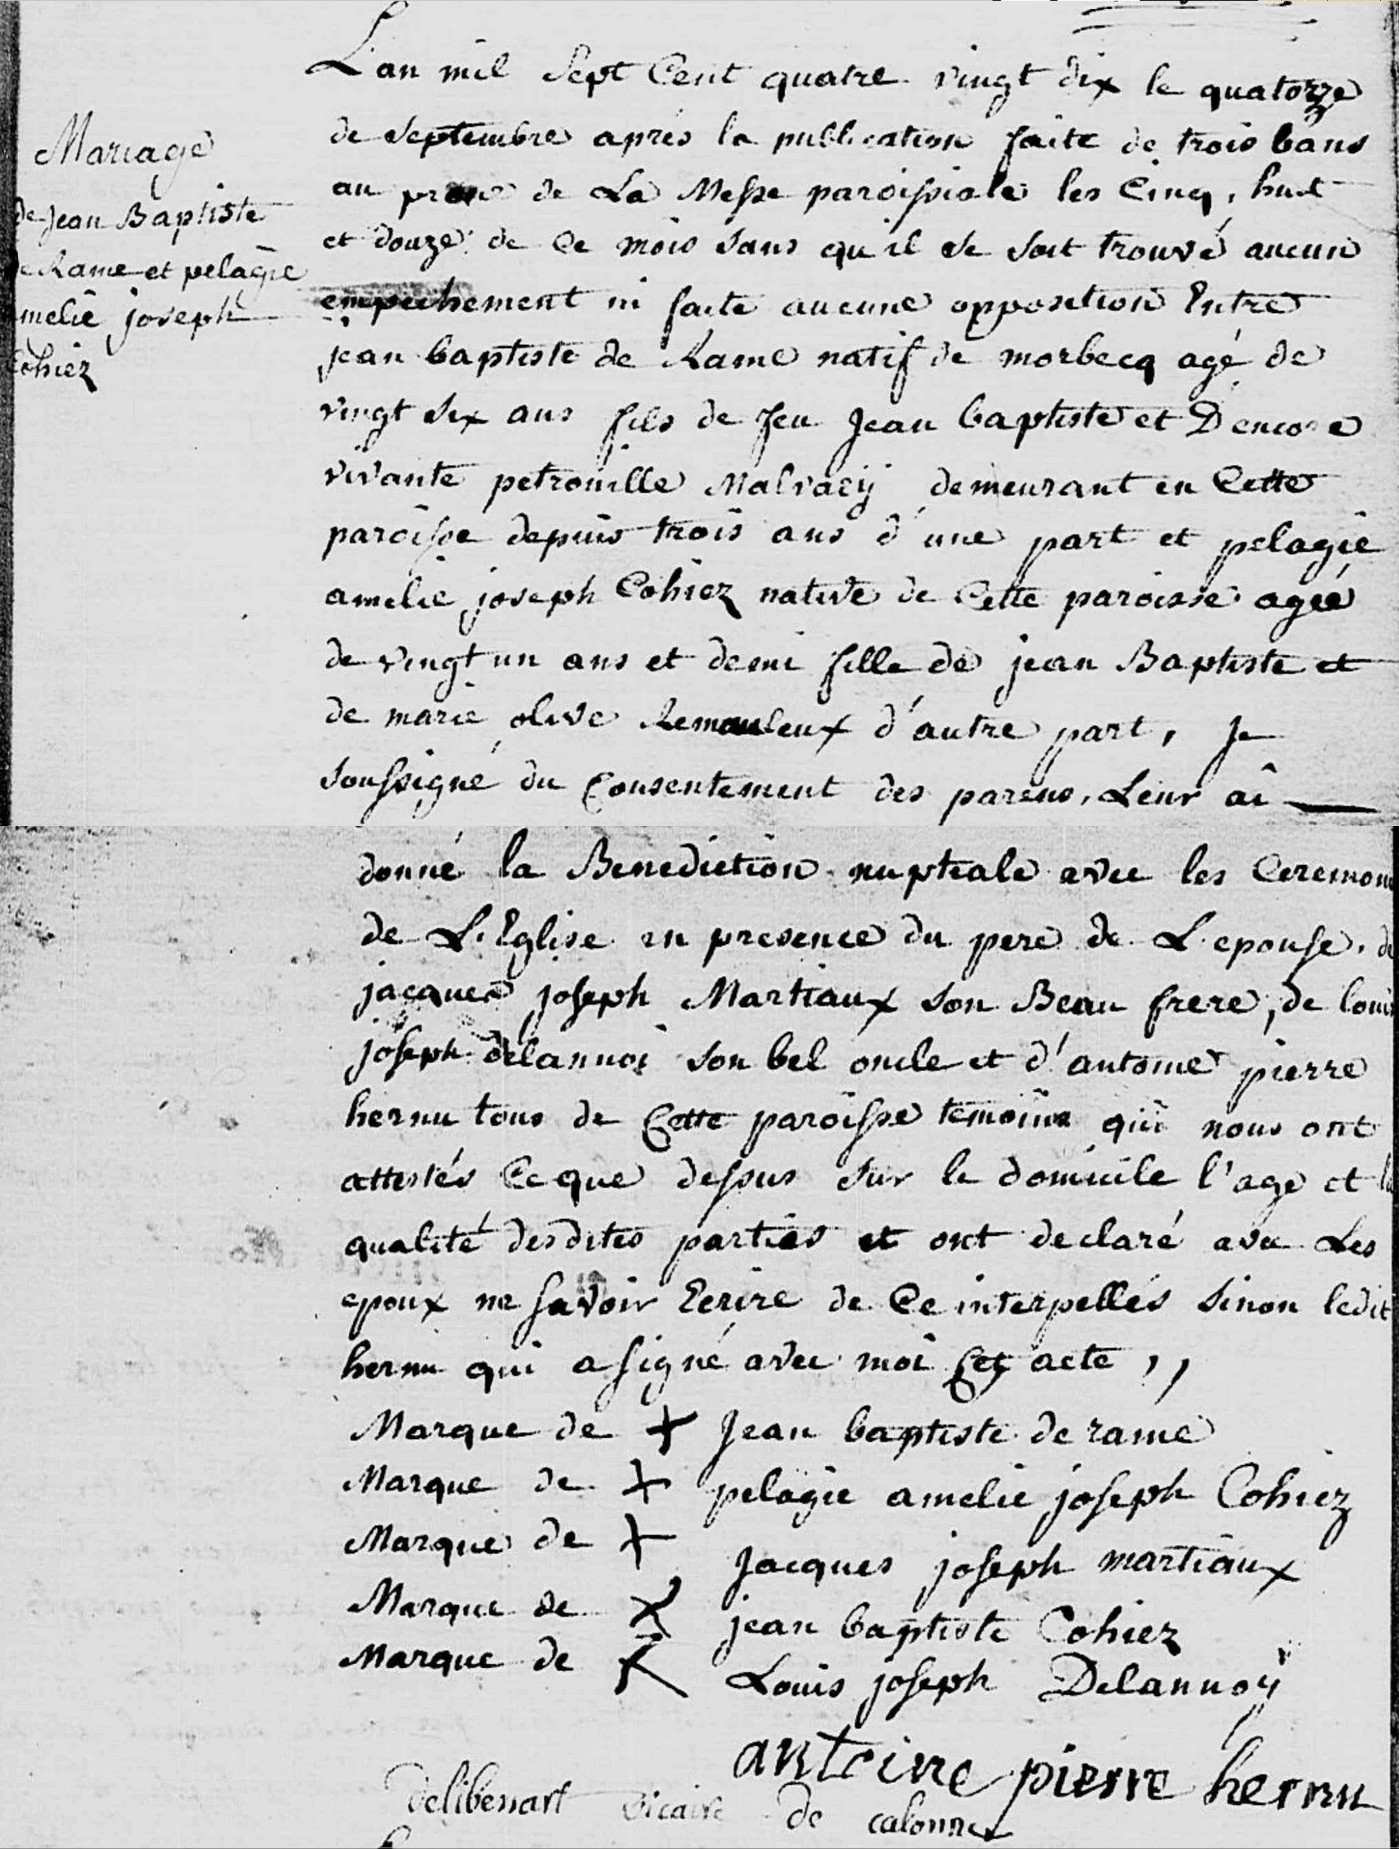 L'an mil Sept Cent quatre vingt dix le quatorze
de septembre après la publication faite de trois bans
au prone de La Messe paroissiale les Cinq, huit
et douze de Ce mois sans qu'il se soit trouvé aucun
empechement ni faite aucune opposition Entre
jean baptiste de Rame natif de morbecq agé de
vingt six ans fils de feu Jean baptiste et D'encore
vivante petronille Malvacÿ demeurant en Cette
paroisse depuis trois ans d'une part et pelagie
amelie joseph Cohiez native de Cette paroisse agée
de vingt un ans et demi fille de jean Baptiste et
de marie olive Remouleux d'autre part, Je
soussigné du Consentement des parens, Leur ai
Mariage
de Jean Baptiste
de Rame et pelagie
amelie joseph
Cohiez
donné la Benediction nuptiale avec les Ceremon
de L'Eglise en presence du pere de L'epouse, de
jacques joseph Martiaux son Beau frere, de louis
joseph delannoi son bel oncle et d'antoine pierre
hernu tous de Cette paroisse temoins qui nous ont
attestés Ce que dessus sur le domicile l'age et la
qualité desdites parties et ont declaré avec Les
epoux ne savoir Ecrire de Ce interpellés sinon ledit
hernu qui a signé avec moi Cet acte ,,
Marque de + Jean baptiste de rame
Marque de + pelagie amelie joseph Cohiez
Marque de + Jacques joseph martiaux
Marque de X jean baptiste Cohiez
Marque de X Louis joseph Delannoÿ
antoine pierre hernu
delibessart vicaire de calonne